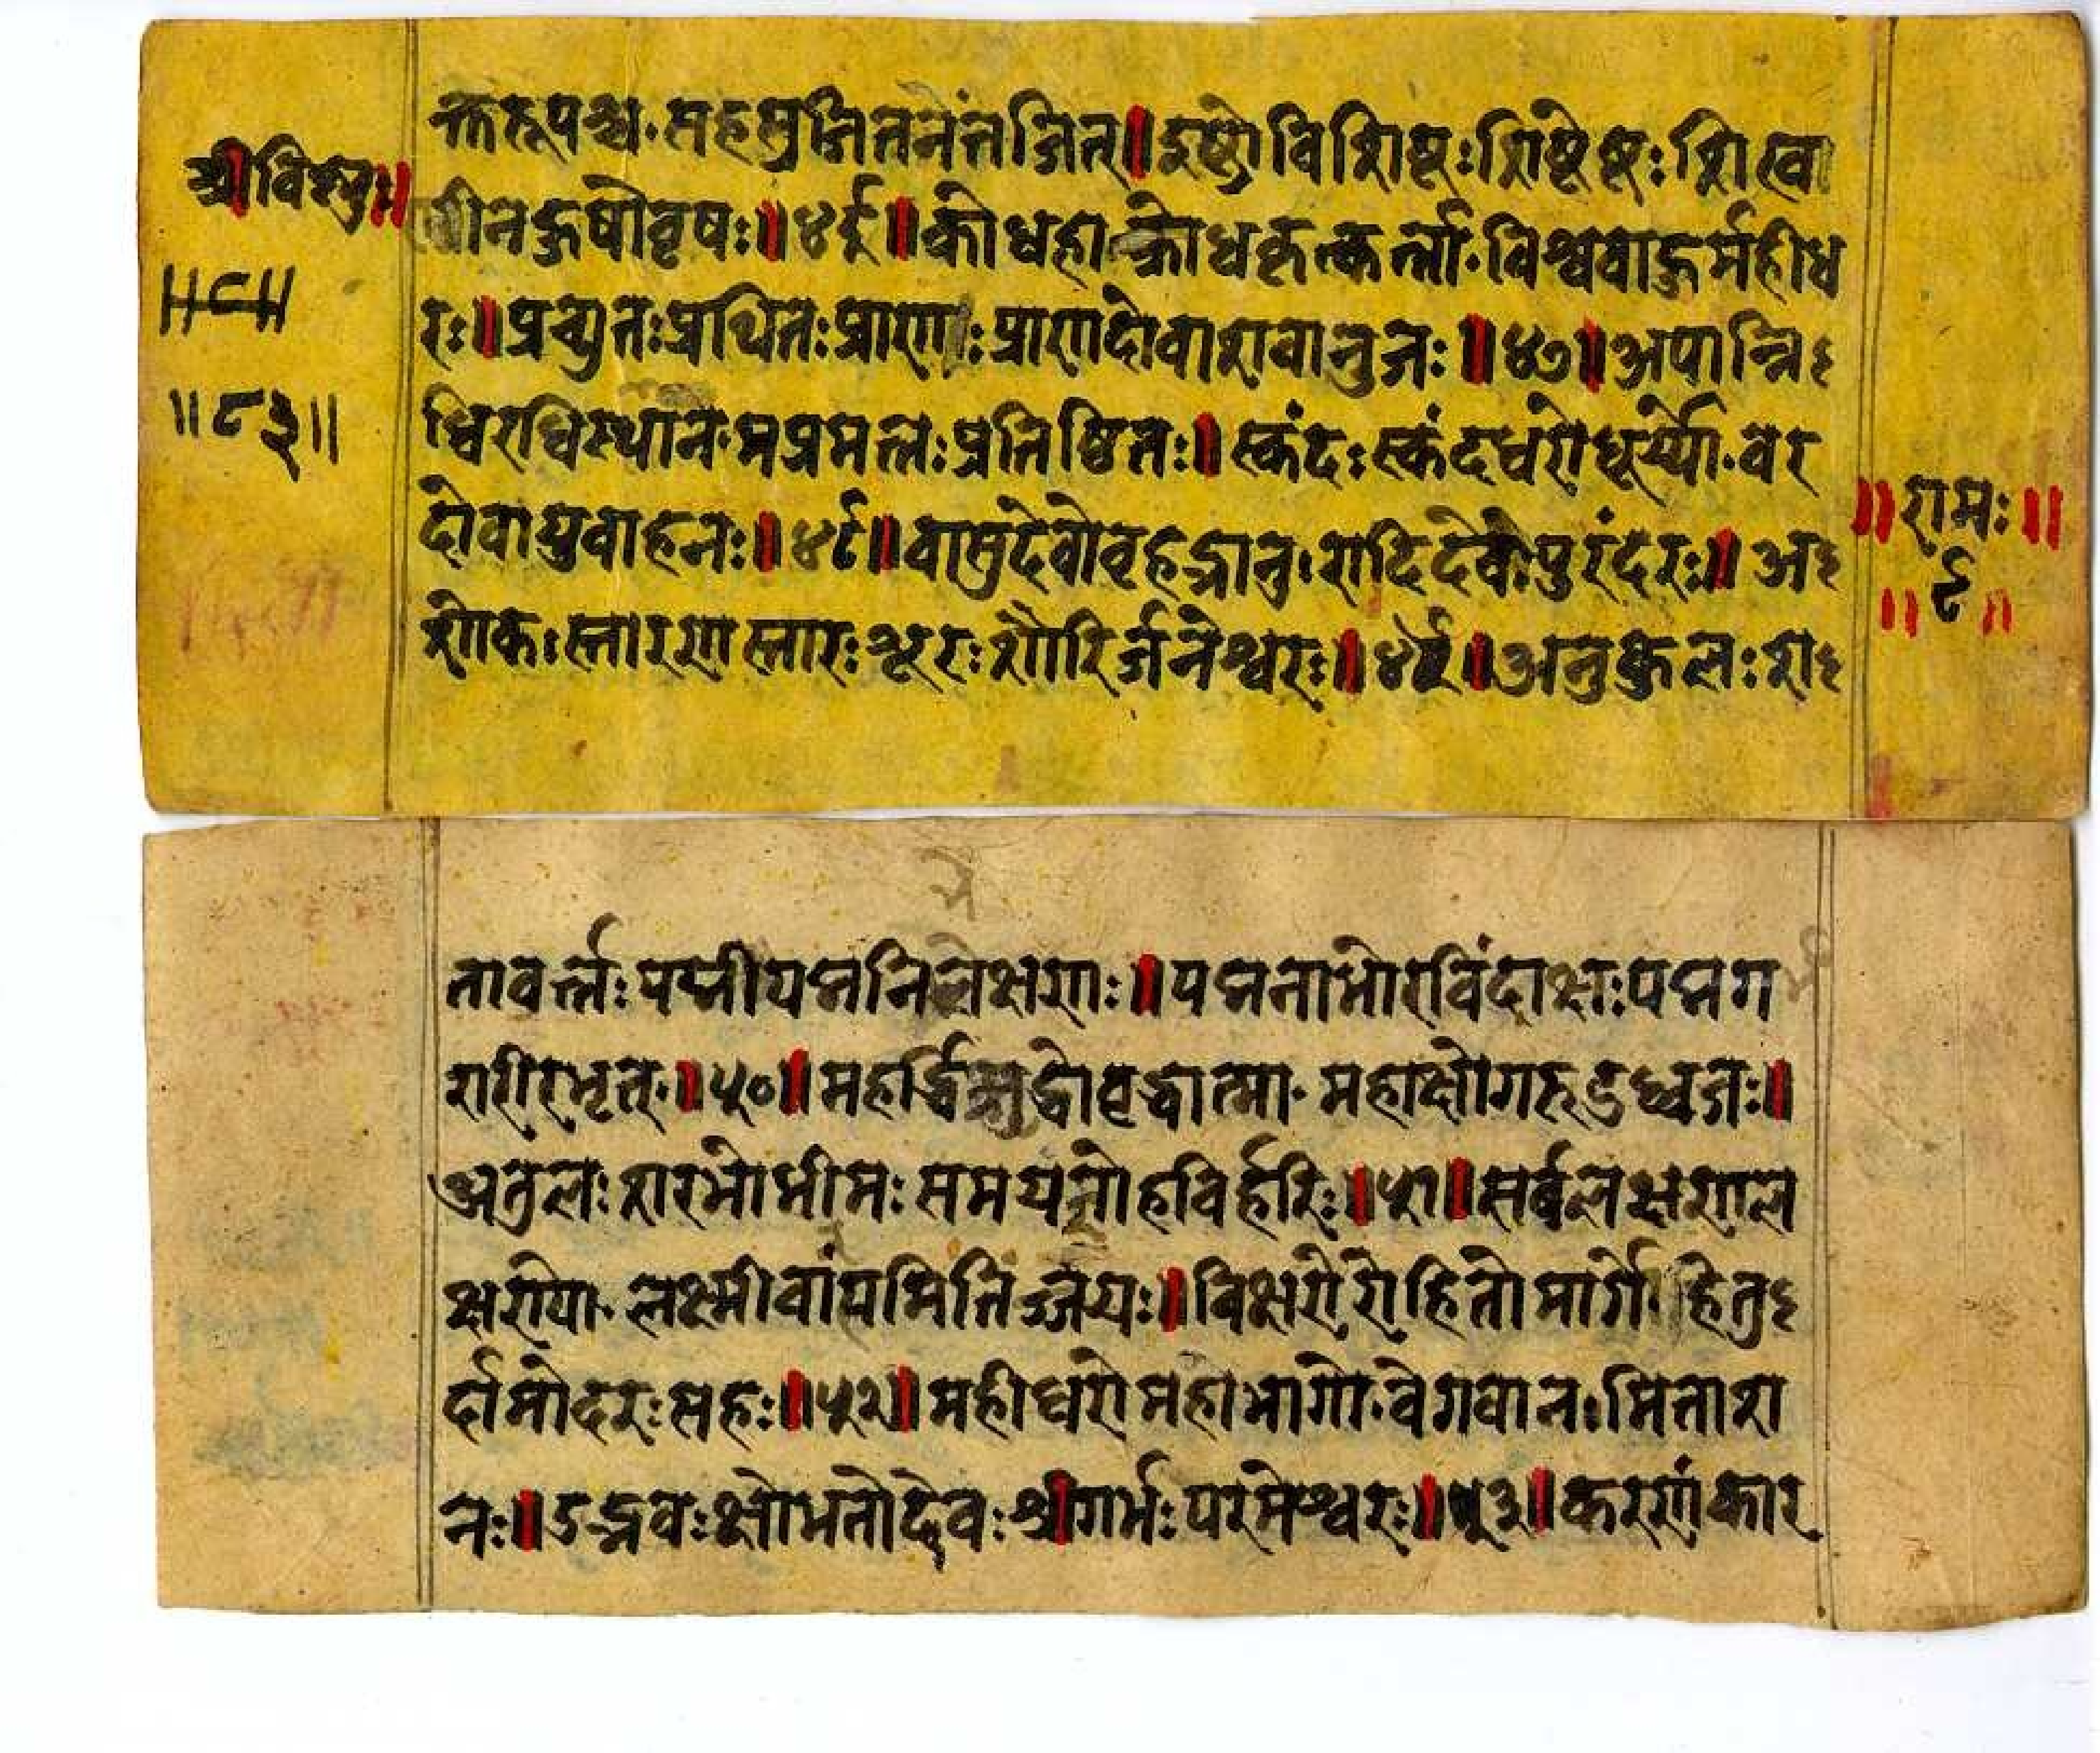 श्रीविष्णुः॥
॥८॥
॥८३॥
क्तरूपश्च·सहस्रजितनंतजित्॥इष्टोविशिष्टःशिष्टेष्टःशिख
नहुषोवृषः॥४६॥क्रोधहाक्रोधकृत्कर्त्ता·विश्ववाहुर्महीध
रः॥प्रच्युतःप्रथितःप्राणःप्राणदोवाशवानुजः॥४७॥अपान्नि
धिरधिस्थान·मप्रमत्तःप्रतिष्ठितः॥स्कंदःस्कंदधरोधूर्य्यो·वर
दोवायुवाहनः॥४८॥वासुदेवोवृहद्भानुःरादिदेवःपुरंदरः॥अ
शोकःस्तारणस्तारःशूरःशौरिर्जनेश्वरः॥४९॥अनुकुलःश
॥रामः॥
॥९॥
तावर्त्तःपद्मीपद्मनिलेक्षणः॥पद्मनाभोरविंदाक्षःपद्मग
राशीरभृत्·॥५०॥महर्द्धिऋद्धोवृद्धात्मा·महाक्षोगरुडध्वजः॥
अतुलःशरभोभीमःसमयज्ञोहविर्हरिः॥५१॥सर्वलक्षणल
क्षणेयो·लक्ष्मीवांपमितिञ्जयः॥विक्षरोरोहितोमार्गो·हेतु
र्दामोदरःसहः॥५२॥महीधरोमहाभागो·वेगवानःमिताश
नः॥उद्भवःक्षोभनोदेवःश्रीगर्भःपरमेश्वरः॥५३॥करणंकार